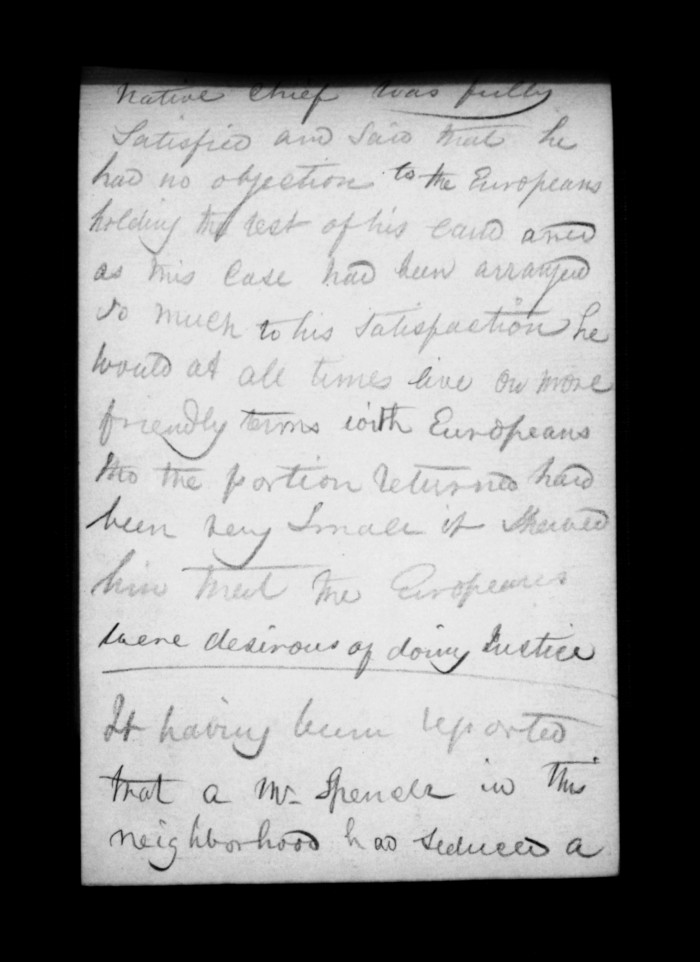 native Chief was fully
Satisfied and Said that he
had no objection to the Europeans
holding the rest of his Land and
as this Case had been arranged
so much to his Satisfaction he
would at all times live on more
friendly terms with Europeans
tho the portion returned had
been very Small it shewed
him that the Europeans
were desirous of doing Justice
It having been reported
that a Mr Spencer in this
neighborhood had seduced a